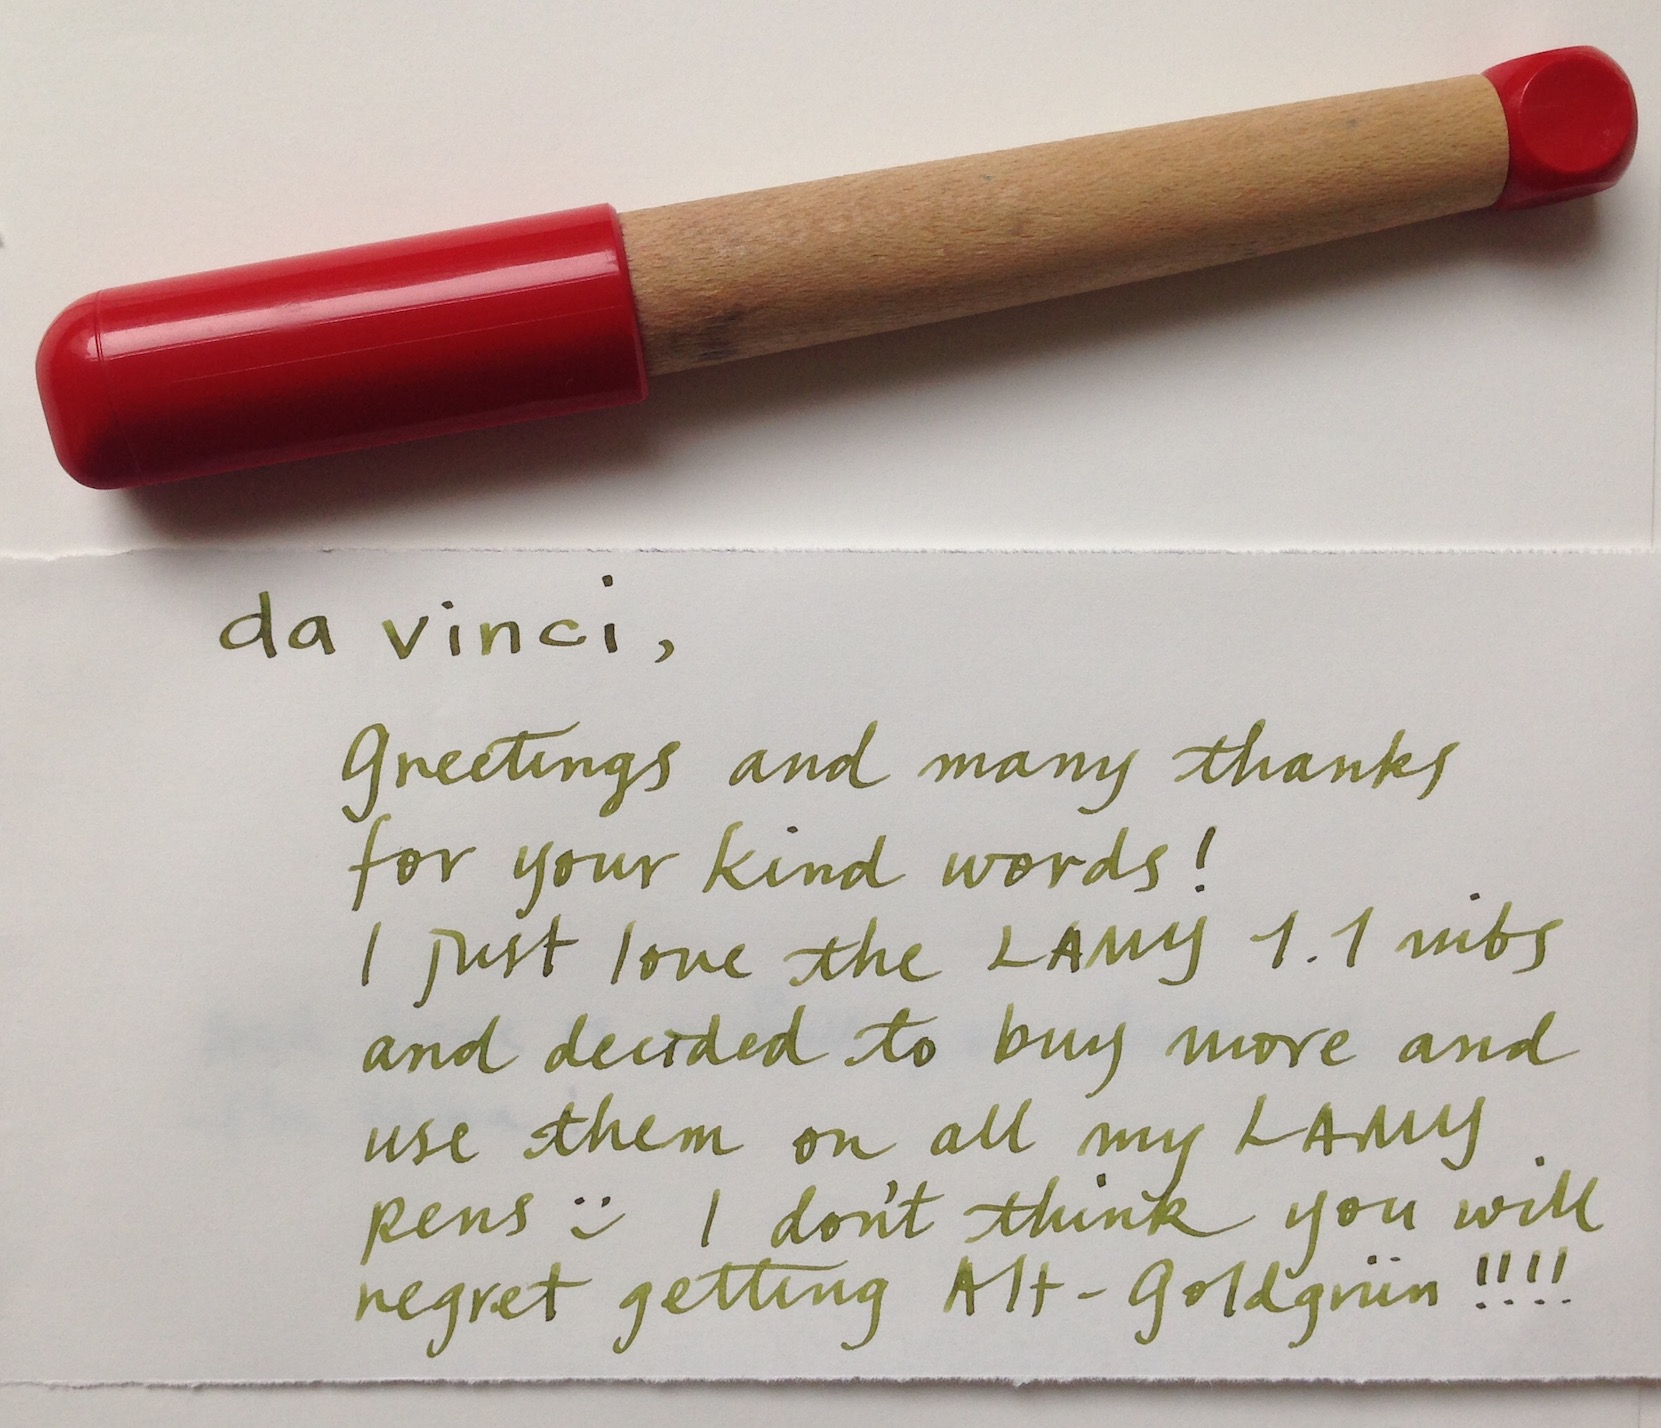 da vinci,
Greetings and many thanks
for your kind words!
I just love the LAMY 1.1 nibs
and decided to buy more and
use them on all my LAMY
pens :) I don't think you will
regret getting Alt-Goldgrün!!!!